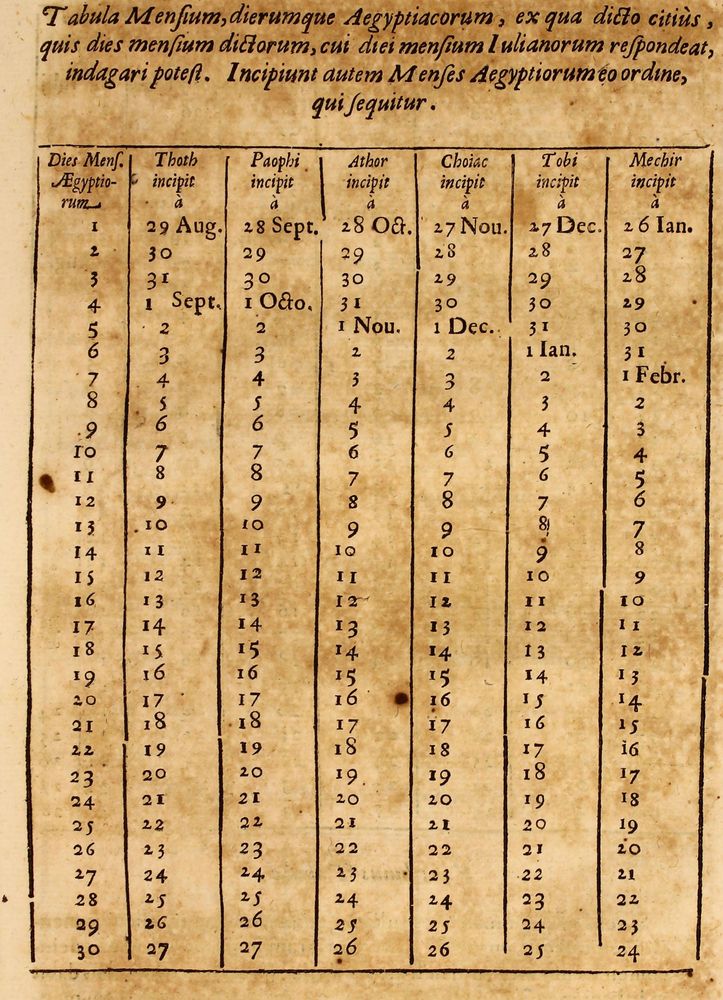 Tabula Mensium, dierumque Aegyptiacorum, ex qua dicto citiùs,
quis dies mensium dictorum, cui diei mensium Iulianorum respondeat,
indagari potest. Incipiunt autem Menses Aegyptiorum eo ordine,
qui sequitur.
Dies Mens. Thoth Paophi Athor Choiac Tobi Mechir
Ægyptio- incipit incipit incipit incipit incipit incipit
rum à à à à à à
1 29 Aug. 28 Sept. 28 Oct. 27 Nou. 27 Dec. 26 Ian.
2 30 29 29 28 28 27
3 31 30 30 29 29 28
4 1 Sept. 1 Octo. 31 30 30 29
5 2 2 1 Nou. 1 Dec. 31 30
6 3 3 2 2 1 Ian. 31
7 4 4 3 3 2 1 Febr.
8 5 5 4 4 3 2
9 6 6 5 5 4 3
10 7 7 6 6 5 4
11 8 8 7 7 6 5
12 9 9 8 8 7 6
13 10 10 9 9 8 7
14 11 11 10 10 9 8
15 12 12 11 11 10 9
16 13 13 12 12 11 10
17 14 14 13 13 12 11
18 15 15 14 14 13 12
19 16 16 15 15 14 13
20 17 17 16 16 15 14
21 18 18 17 17 16 15
22 19 19 18 18 17 16
23 20 20 19 19 18 17
24 21 21 20 20 19 18
25 22 22 21 21 20 19
26 23 23 22 22 21 20
27 24 24 23 23 22 21
28 25 25 24 24 23 22
29 26 26 25 25 24 23
30 27 27 26 26 25 24